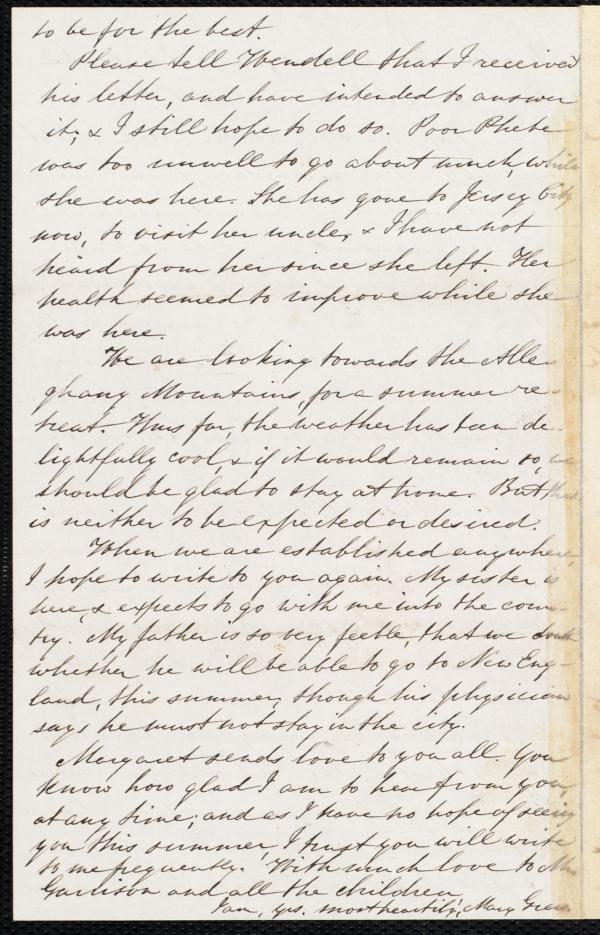 to be for the best.
Please tell Wendell that I received
his letter, and have intended to answer
it, & I still hope to do so. Poor Phebe
was too unwell to go about much, while
she was here. She has gone to Jersey City
now, to visit her uncle, & I have not
heard from her since she left. Her
health seemed to improve while she
was here.
We are looking towards the Alle-
ghany Mountains, for a summer re-
treat. Thus far, the weather has been de-
lightfully cool, & if it would remain so, we
should be glad to stay at home. But that
is neither to be expected or desired.
When we are established anywhere,
I hope to write to you again. My sister is
here, & expects to go with me into the coun-
try. My father is so very feeble, that we doubt
whether he will be able to go to New Eng-
land, this summer, though his physician
says he must not stay in the city.
Margaret sends love to you all. You
know how glad I am to hear from you,
at any time; and as I have no hope of seeing
you this summer, I trust you will write
to me frequently. With much love to Mr.
Garrison and all the children,
I am, yrs. most heartily, Mary Grew.